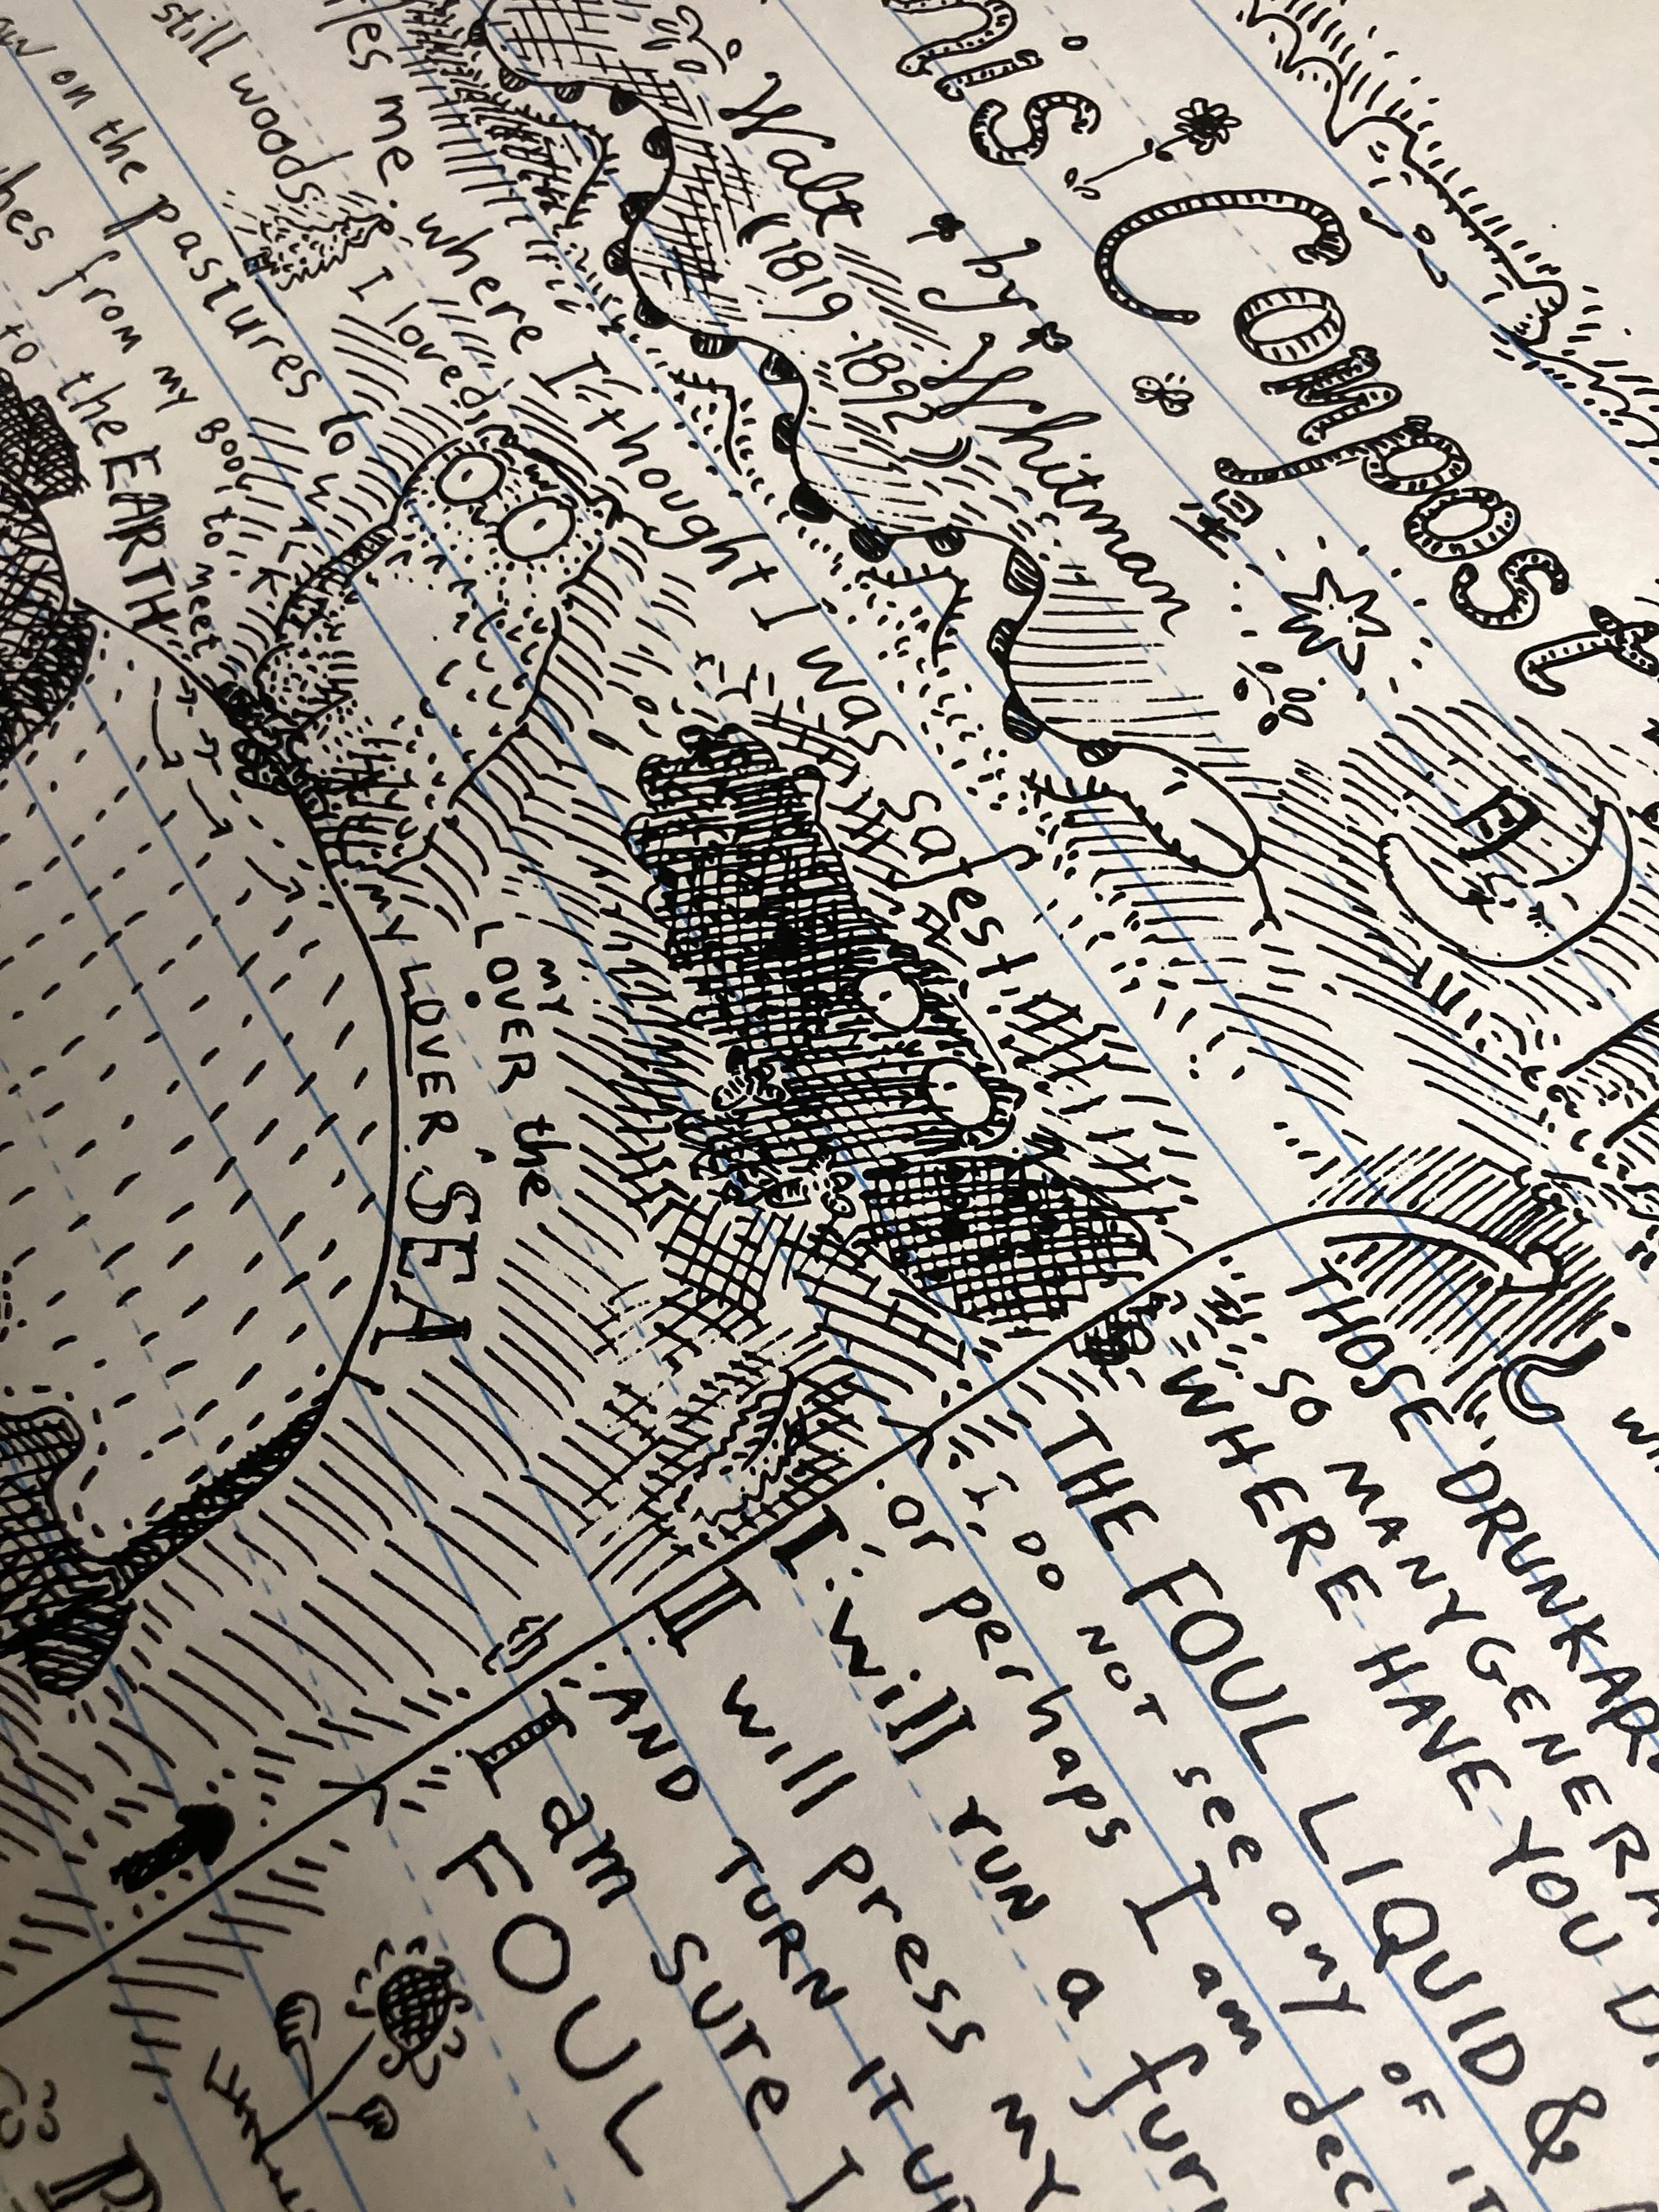 nis Compost
by
Walt Whitman
(1819-1892)
les me where I thought I was safest
still woods I loved
w on the pastures to
hes from my BODY to meet
to the EARTH
my LOVER the
my LOVER SEA
THOSE DRUNKAR
SO MANY GENERA
WHERE HAVE YOU D
THE FOUL LIQUID &
I DO NOT see any OF IT
or perhaps I am dec
I will run a furr
I will press my
AND TURN IT UP
I am sure I
FOUL